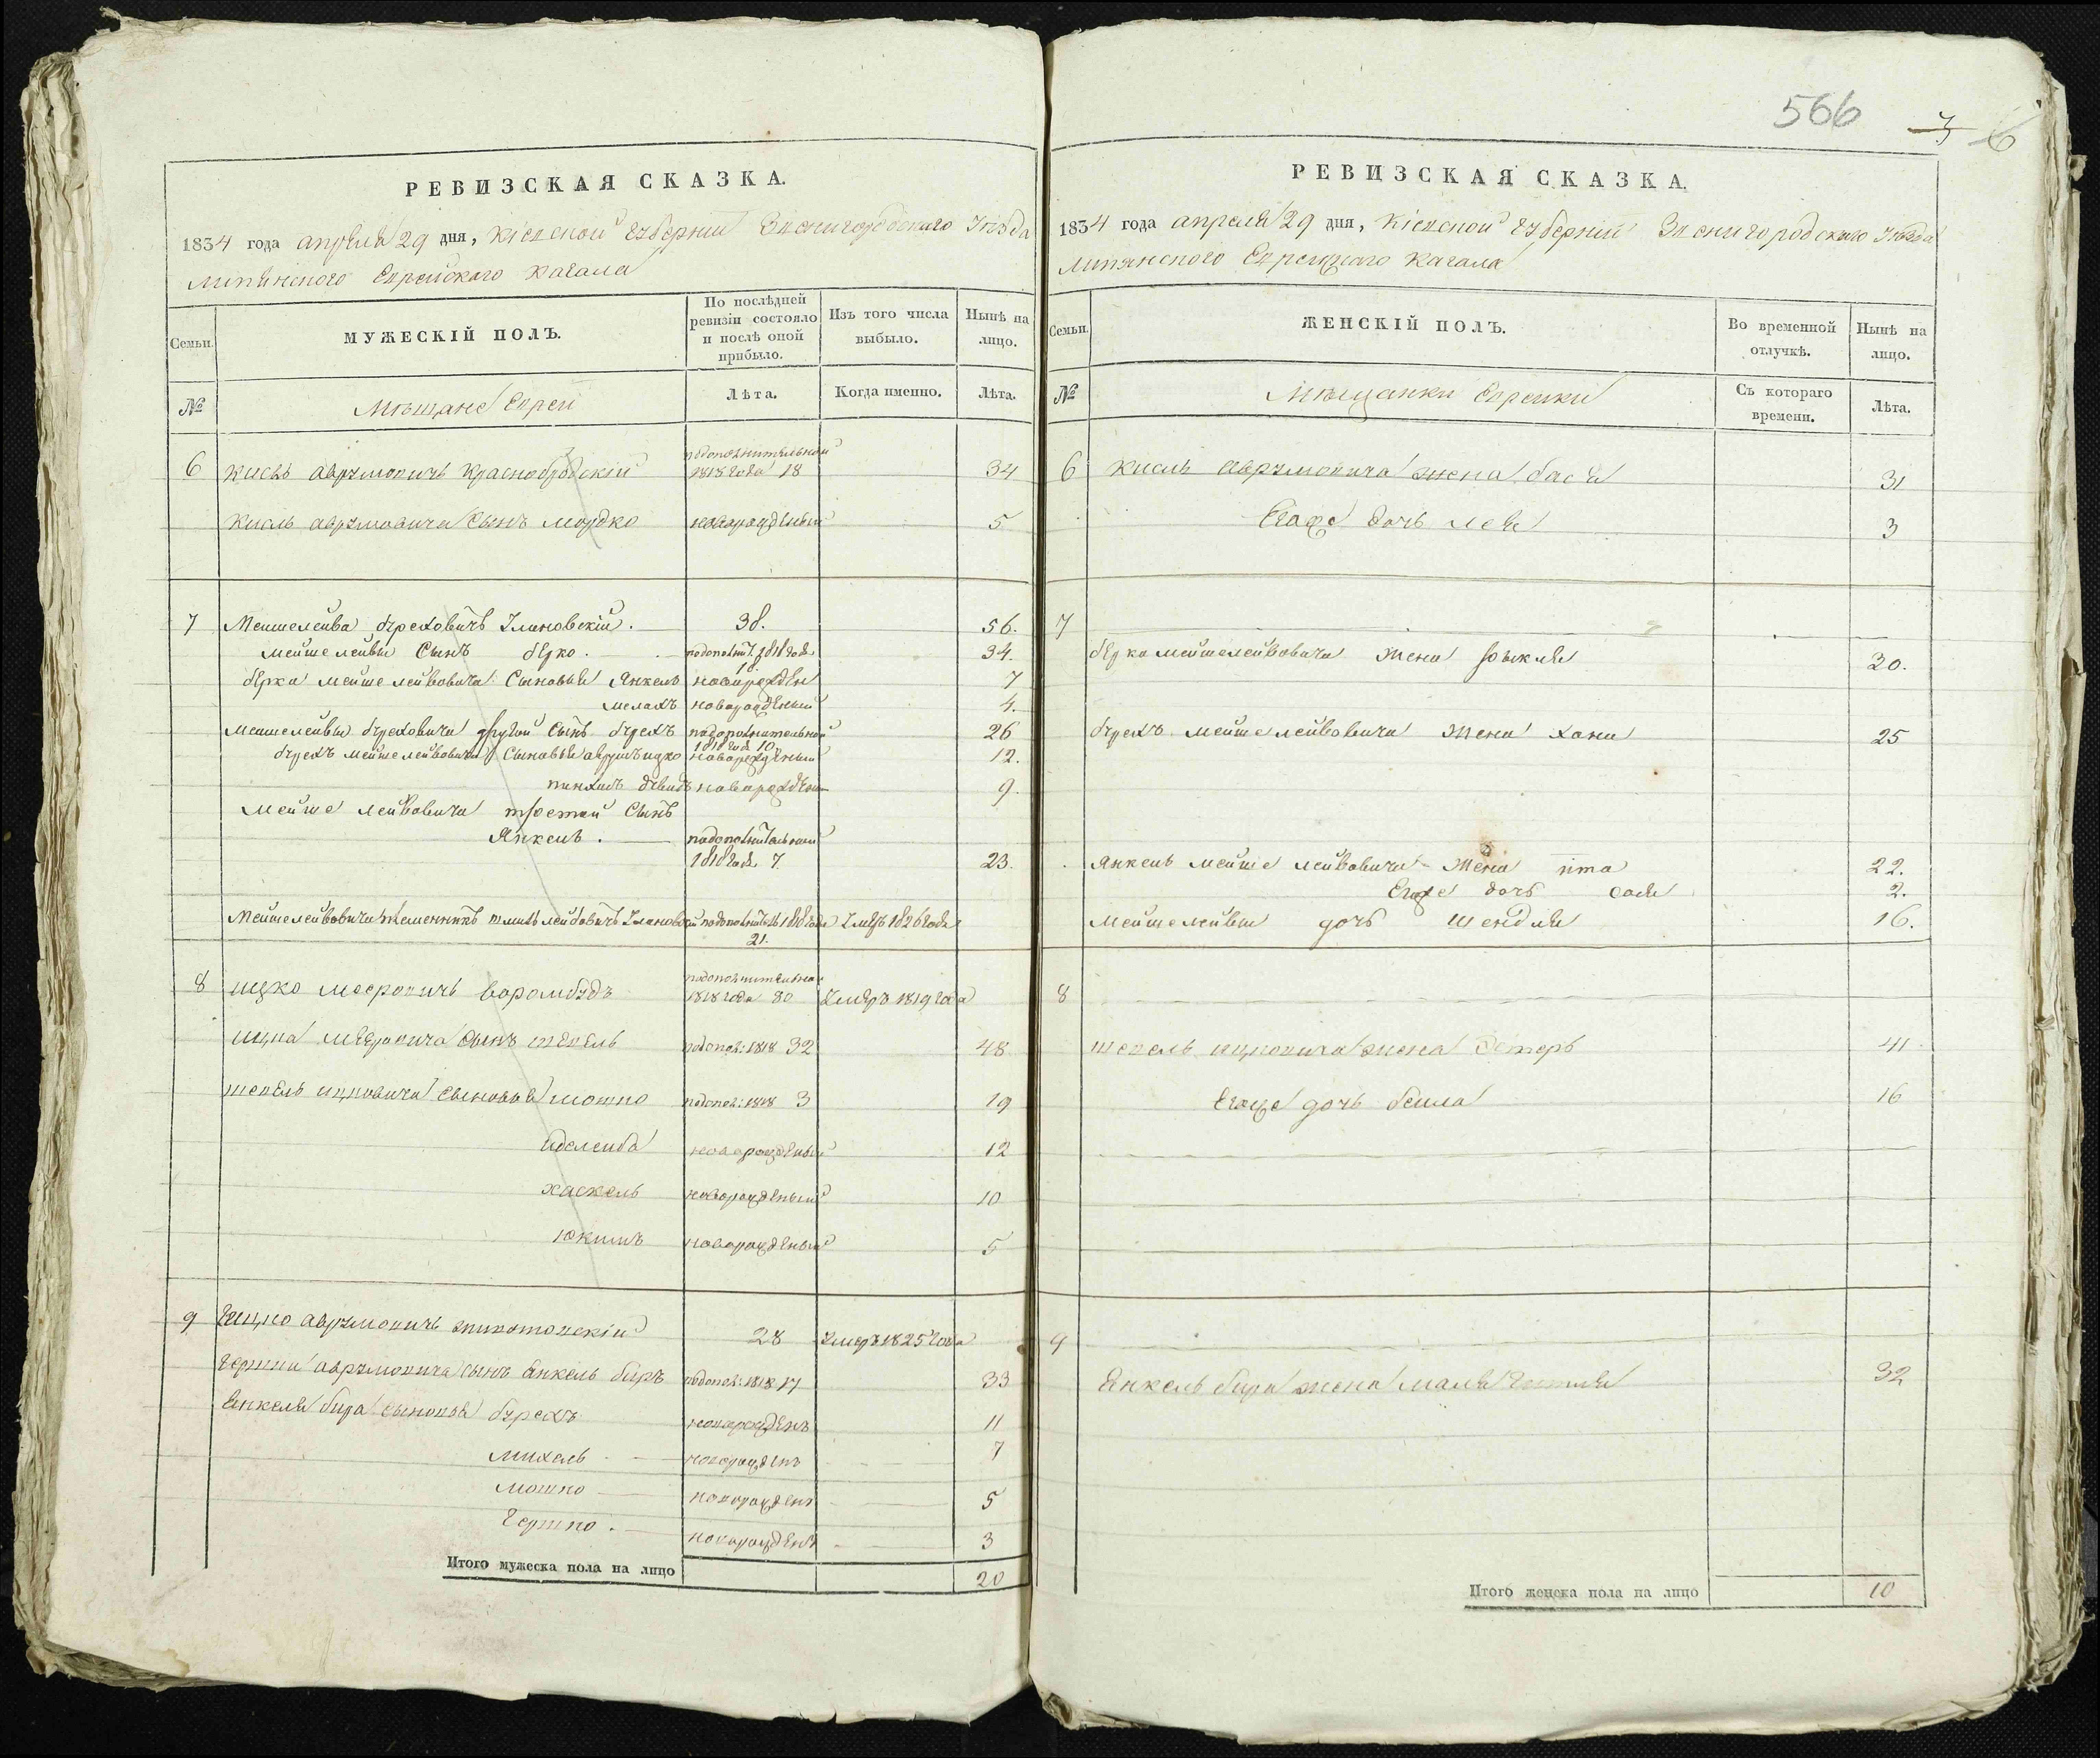 566
6
РЕВИЗСКАЯ СКАЗКА.
1834 года апреля 29 дня, Кіевской Губерніи Звенигородского Уезда
Липянского Еврейского Кагала
Семьи.
МУЖЕСКІЙ ПОЛЪ.
По послѣдней ревизіи состояло и послѣ оной прибыло.
Изъ того числа выбыло.
Нынѣ на лицо.
№
Мѣщане Евреи
Лѣта.
Когда именно.
Лѣта.
6 Кисль Аврумовичъ Краснобродскій подополнительной 1818 года 18 34
Кисль Аврумовича Сынъ Мордко новорожденый 5
7 Мейшелейба Бурехович 38. 56.
Мейшелейбы Сынъ Берко подополнит. 1818 года 18 34.
Берка Мейшелейбовича Сыновья Янкель новорожден 7
Мелахъ новорожденый 4.
Мейшелейбы Буреховича другой Сынъ Бурехъ подополнительной 1818 года 10 26
Бурехъ Мейшелейбовича Сыновья Аврумъ Ицко новорожденый 12.
Пинхасъ Дувидъ новорожден 9.
Мейше Лейбовича третий Сынъ
Янкель. подополнительной
1818 года 7 23.
Мейшелейбовича племенникъ Лейбовичъ 1818 года 21. Умеръ 1826 года
8 Ицко Мееровичъ подополнительной 1818 года 80 Умеръ 1819 года
Ицка Меэровича Сынъ Шепель подопол: 1818 32 48
Шепель Ицковича Сыновья Мошко подопол: 1818 3 19
Иделейба новорожденый 12
Хаскель новорожденый 10
Юкимъ новорожденый 5
9 Гершко Аврумовичъ 28 Умеръ 1825 года
Гершки Аврумовича Сынъ Янкель Беръ подопол: 1818 17 33
Янкеля Бера Сыновья Бурехъ новорожденъ 11
Михель новорожденъ 7
Мошко новорожденъ 5
Гершко. новорожденъ 3
Итого мужеска пола на лицо 20
РЕВИЗСКАЯ СКАЗКА.
1834 года апреля 29 дня, Кіевской Губерніи Звенигородского Уезда
Липянского Еврейского Кагала
Семьи.
ЖЕНСКІЙ ПОЛЪ.
Во временной отлучкѣ.
Нынѣ на лицо.
№
Мѣщанки Еврейки
Съ котораго времени.
Лѣта.
6 Кисль Аврумовича жена Бася 31
Егоже дочь Лея 3
7
Берка Мейшелейбовича жена 30.
Бурехъ Мейшелейбовича жена Хана 25
Янкель Мейше Лейбовича жена Ита 22.
Егоже дочь Сося 2.
Мейшелейбы дочь Шендля 16.
8
Шепель Ицковича жена Эстеръ 41
Егоже дочь Бейла 16
9
Янкель Бера жена Маля 32
Итого женска пола на лицо 10